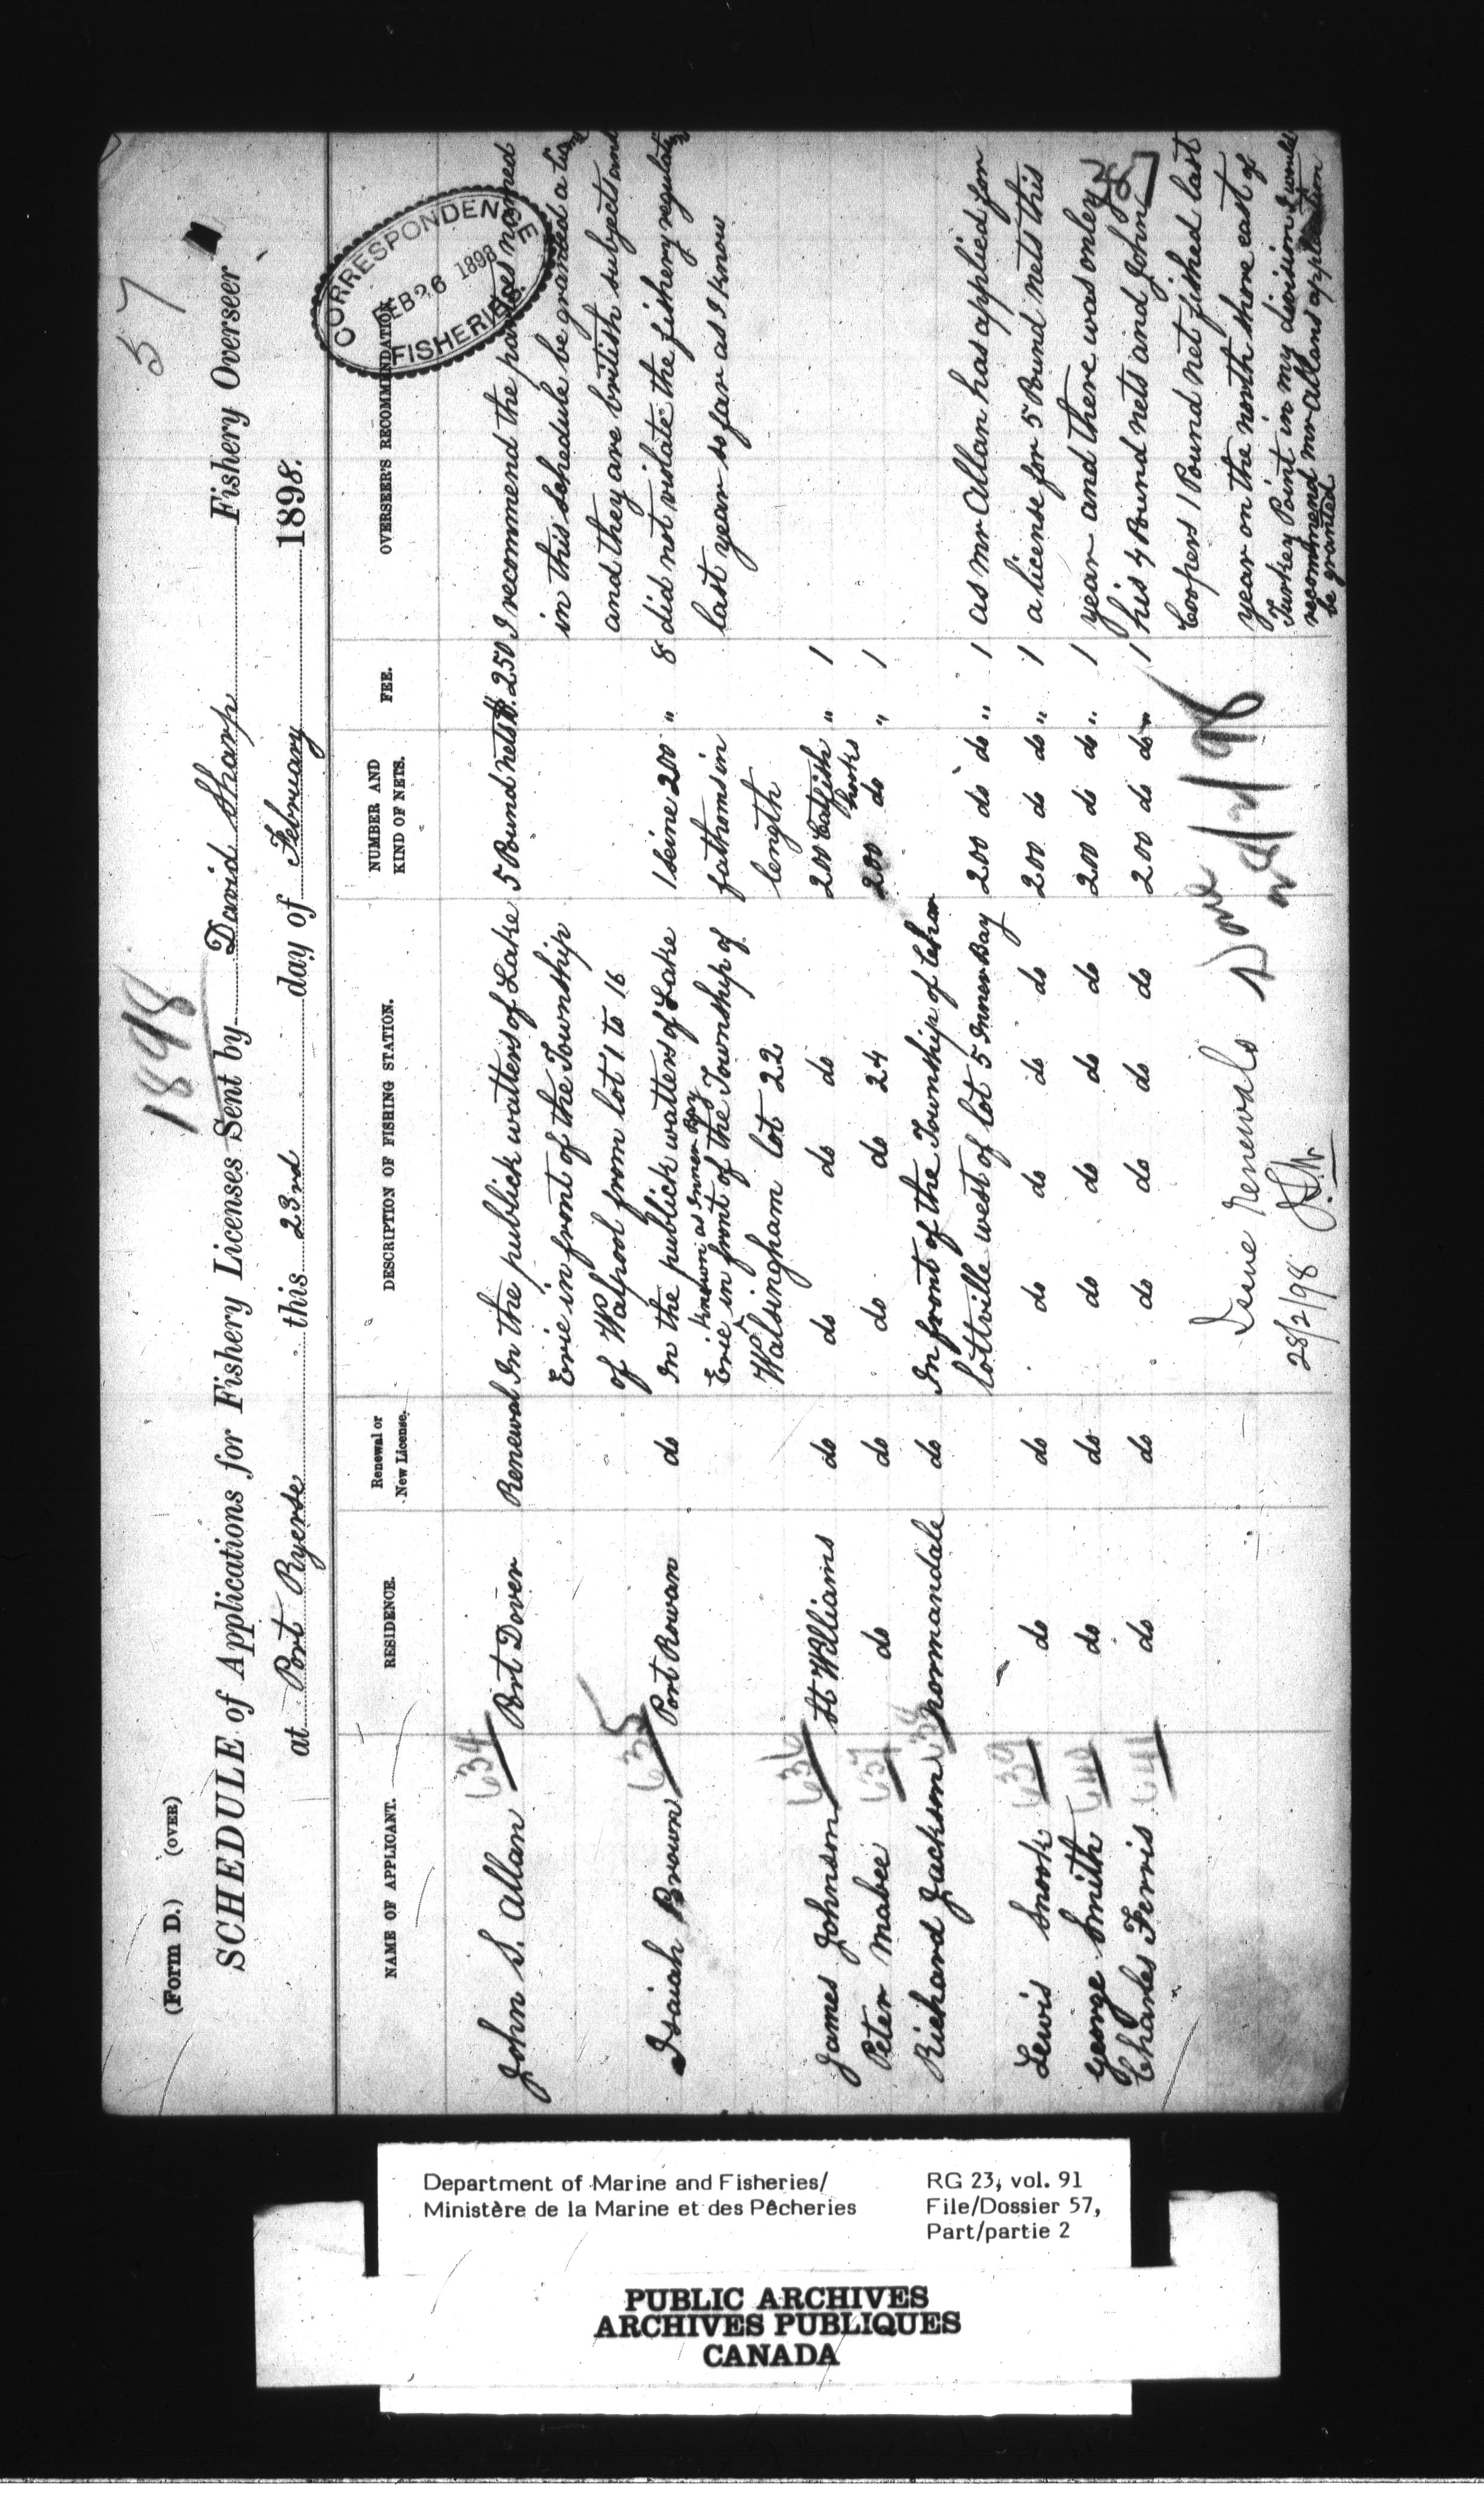 57
1898
(Form D.) (OVER)
SCHEDULE of Applications for Fishery Licenses Sent by David Sharp Fishery Overseer
at Port Ryerse this 23rd day of February 1898.
CORRESPONDENCE
FEB 26 1898
FISHERIES.
NAME OF APPLICANT. RESIDENCE. Renewal or New License. DESCRIPTION OF FISHING STATION. NUMBER AND KIND OF NETS. FEE. OVERSEER'S RECOMMENDATION
John S. Allan 634 Port Dover Renewal In the publick watters of Lake 5 Pound nets $ 250 I recommend the parties named
Erie in front of the Township in this schedule be granted a
of Walpool from lot 1 to 16 and they are british subjects and
Isaiah Brown 635 Port Rowan do In the publick watters of Lake 1 seine 200 " 8 did not violate the fishery
known as Inner Bay
Erie in front of the Township of fathoms in last year so far as I know
Walsingham lot 22 length
James Johnson 636 St Williams do do do do 200 Catfish hooks " 1
Peter Mabee 637 do do do do 24 200 do " 1
Richard Jackson 638 Normandale do In front of the Township of Char
lottville west of lot 5 Inner Bay 200 do do " 1 as mr Allan has applied for
Lewis Snook 639 do do do do do do 200 do do " 1 a license for 5 Pound nets this
George Smith 640 do do do do do do 200 do do " 1 year and there was only
Charles Ferris 641 do do do do do do 200 do do " 1 his 4 Pound nets and John
Coopers 1 Pound net fished last
year on the north shore east of
Turkey Point in my division I would
recommend mr Allans
be granted
Issue Renewals
28/2/98
Done
Department of Marine and Fisheries/
Ministère de la Marine et des Pêcheries
RG 23, vol. 91
File/Dossier 57,
Part/partie 2
PUBLIC ARCHIVES
ARCHIVES PUBLIQUES
CANADA